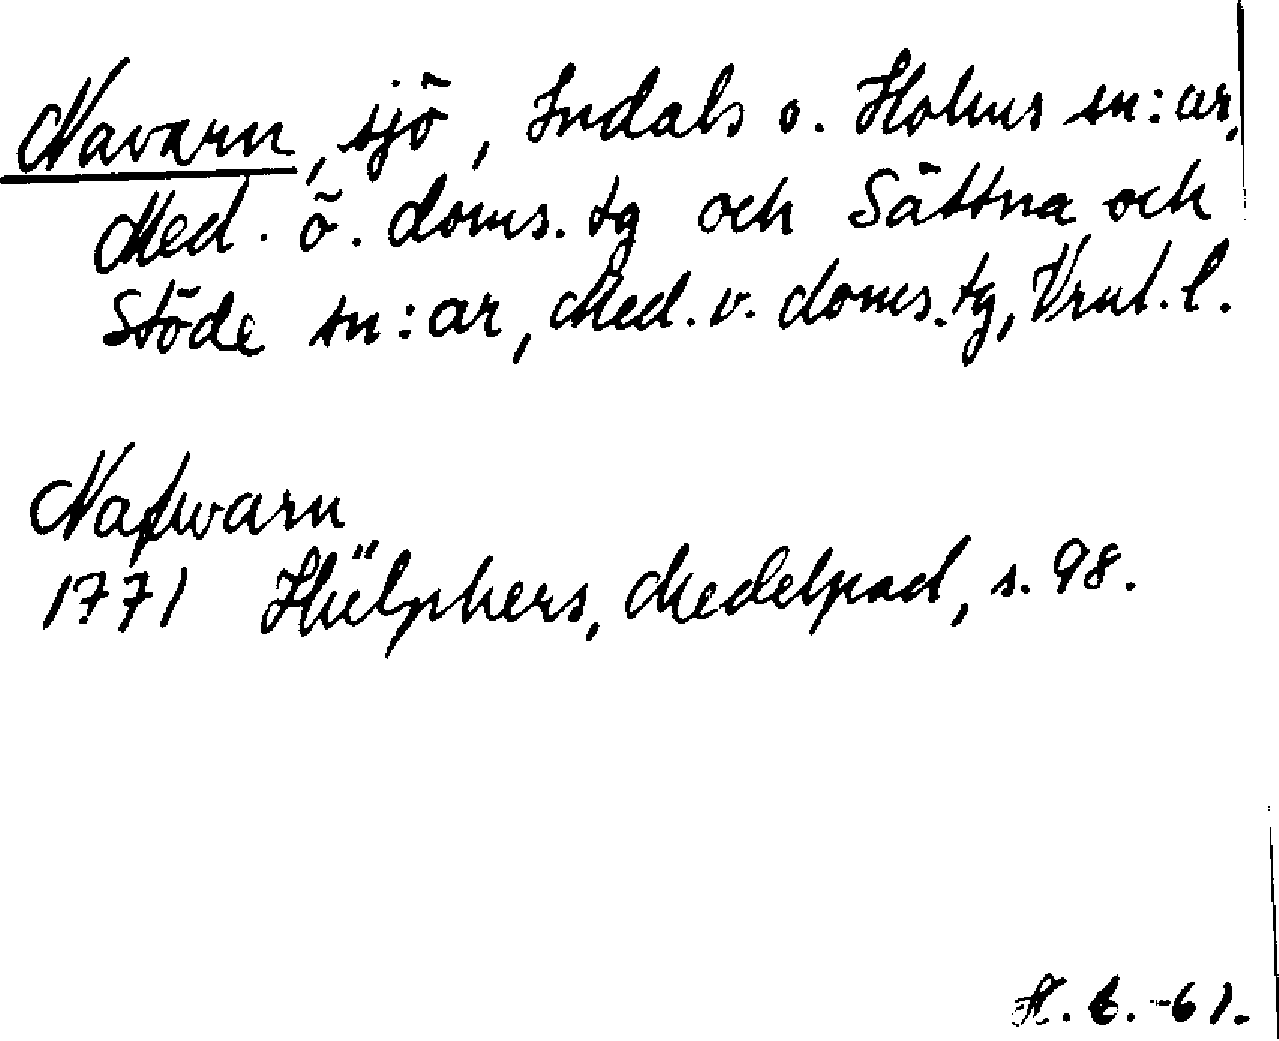 Navarn, sjö, Indals o. Holms sn:ar,
Med. ö. doms. tg och Sättna och
Stöde sn:ar, Med. v. doms. tg, Vrnl. l.
Nafwarn
1771 Hülphers, Medelpad, s. 98.
H. C. -61.